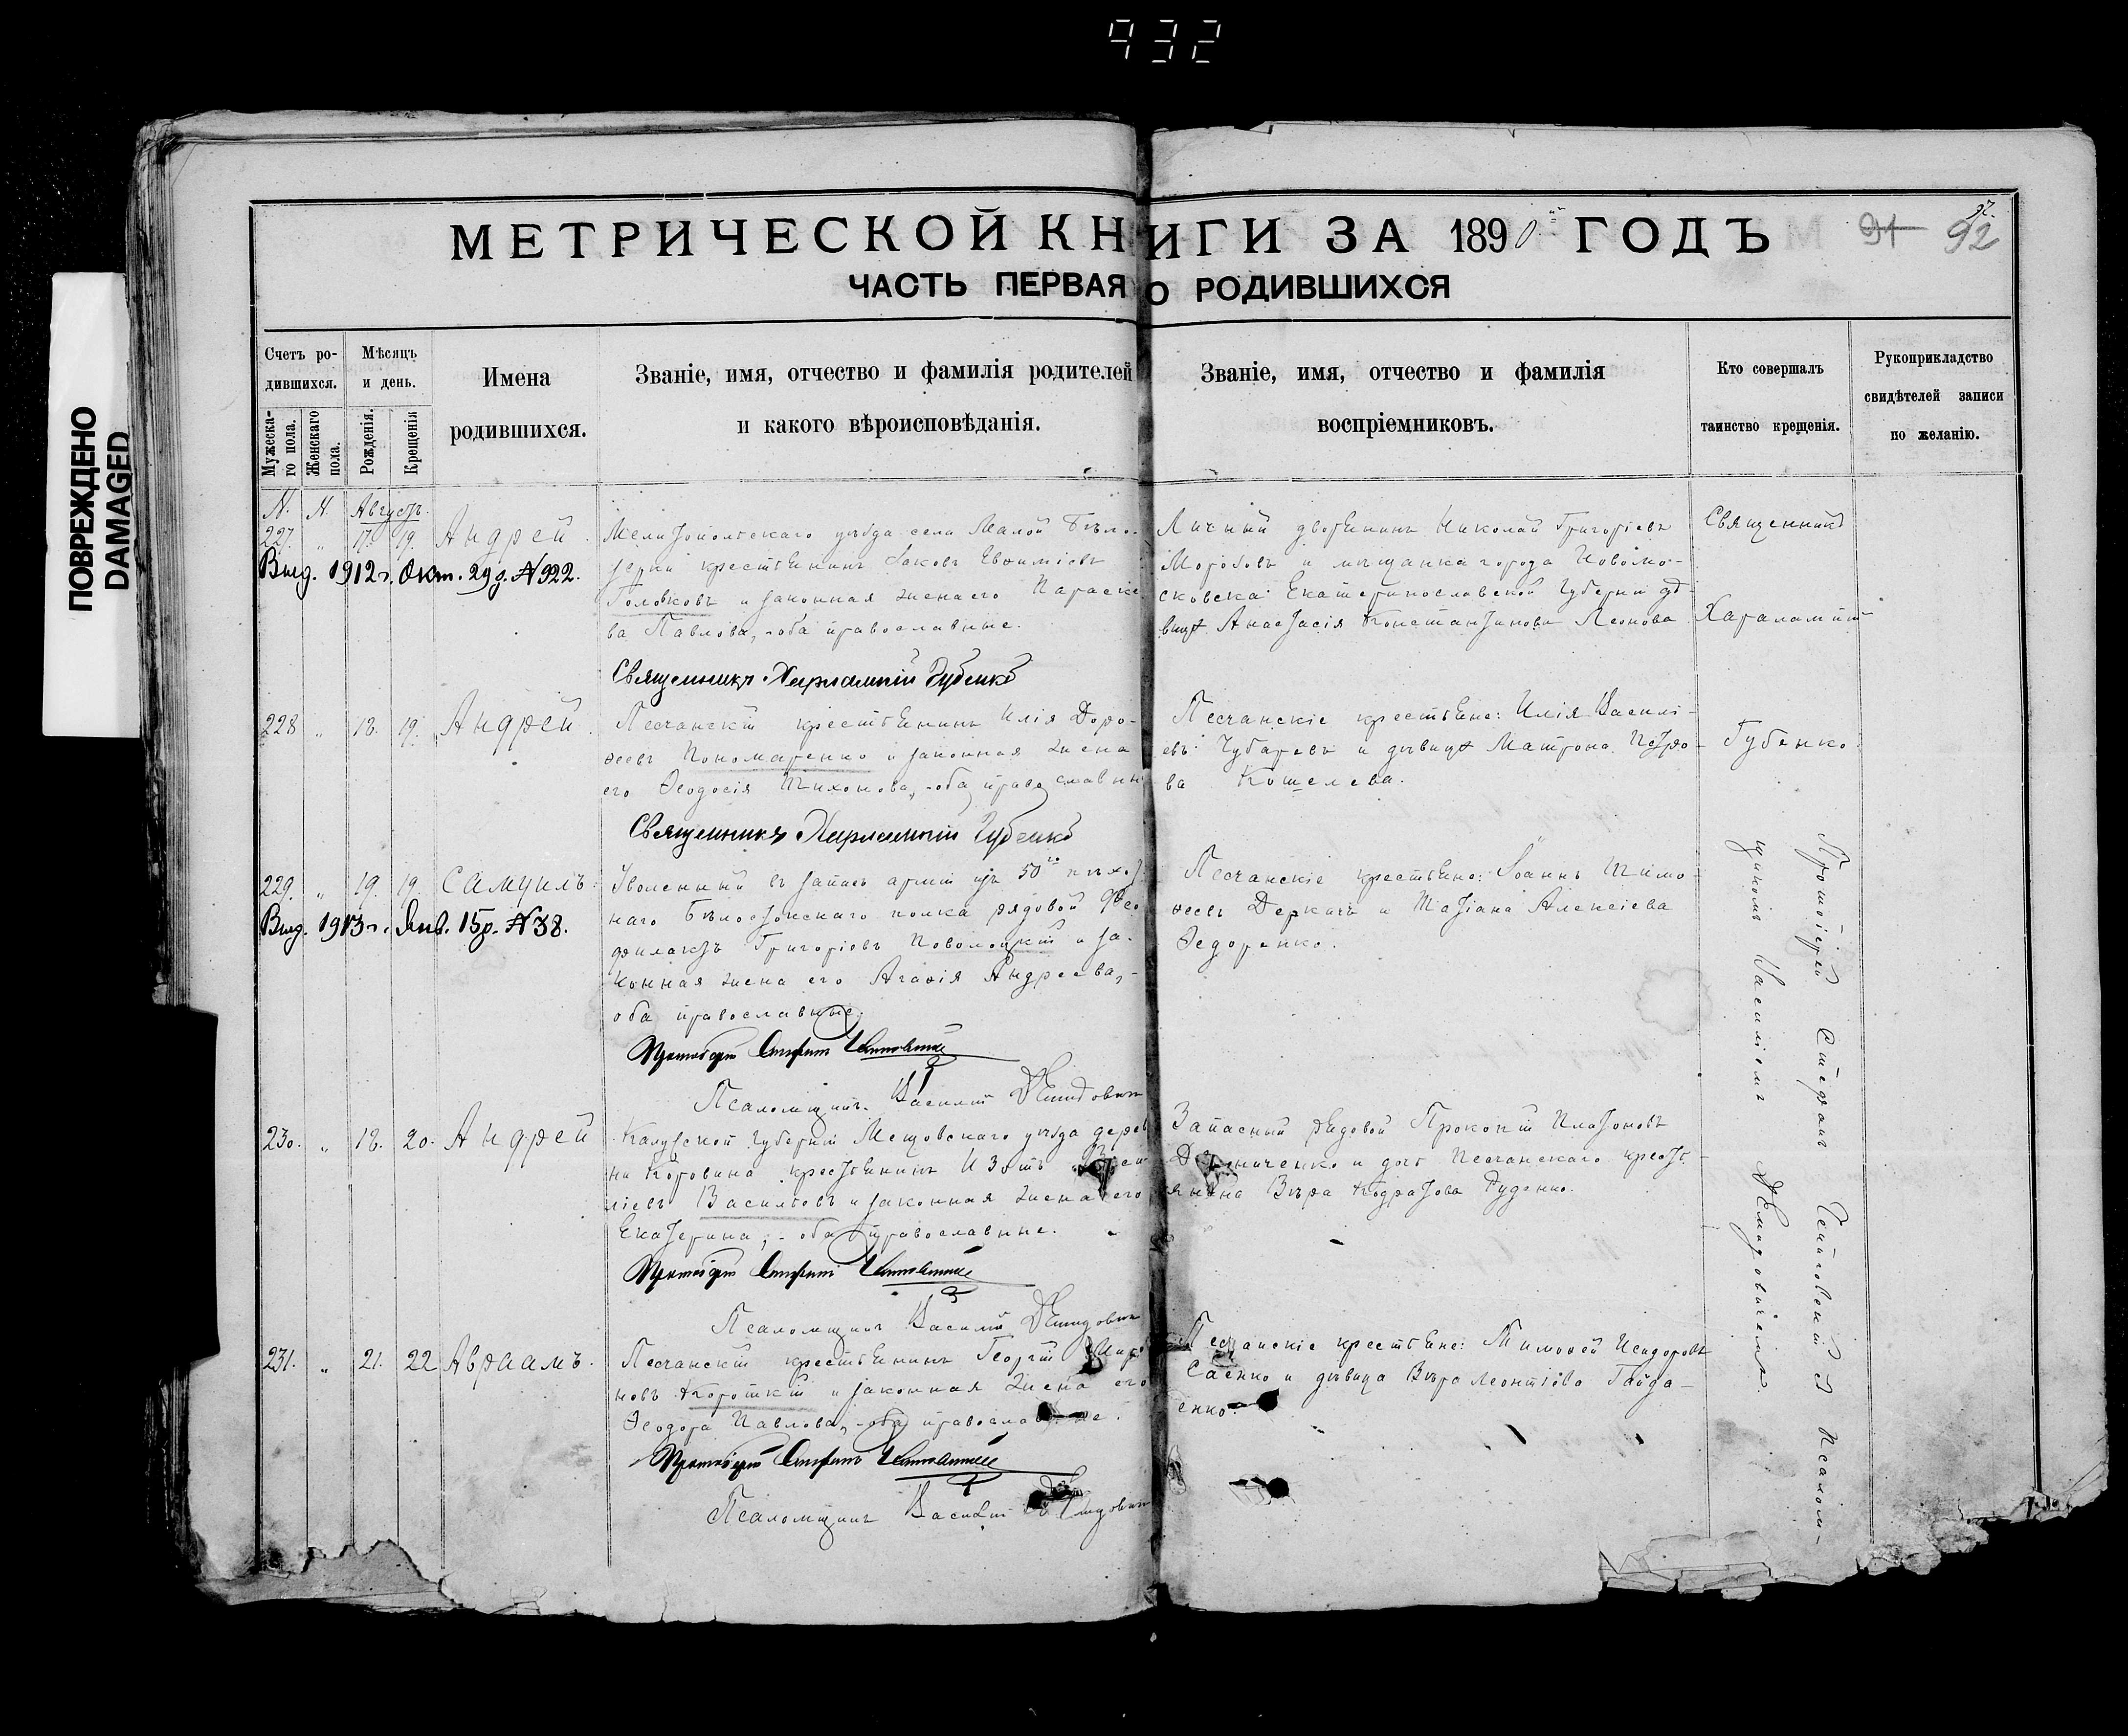 932
ПОВРЕЖДЕНО
DAMAGED
МЕТРИЧЕСКОЙ КНИГИ ЗА 1890й ГОДЪ
91 92
ЧАСТЬ ПЕРВАЯ О РОДИВШИХСЯ
Счетъ ро-
дившихся.
Мужеска-
го пола.
Женскаго
пола.
Мѣсяцъ
и день.
Рожденія.
Крещенія
Имена
родившихся.
Званіе, имя, отчество и фамилія родителей
и какого вѣроисповѣданія.
Званіе, имя, отчество и фамилія
воспріемниковъ.
Кто совершалъ
таинство крещенія.
Рукоприкладство
свидѣтелей записи
по желанію.
Августъ.
227. " 17. 19. Андрей.
Выд. 1912 г. Окт. 29 д. № 922.
Мелитопольскаго уѣзда села Малой Бѣло-
зерки крестьянинъ Іаковъ Евѳиміевъ
Головковъ и законная жена его Параске
ва Павлова, - оба православные.
Священникъ Харлампій Губенко
Личный дворянинъ Николай Григоріевъ
Морозовъ и мѣщанка города Новомо-
сковска Екатеринославской Губерніи дѣ-
вица Анастасія Константинова Леонова
Священникъ
Харалампій
Губенко
228 " 18. 19. Андрей.
Песчанскій крестьянинъ Илія Доро-
ѳеевъ Пономаренко и законная жена
его Ѳеодосія Тихонова, - оба православн
Священникъ Харлампій Губенко
Песчанскіе крестьяне: Илія Василі-
евъ Чубаревъ и дѣвица Матрона Петро-
ва Кошелева.
229. " 19. 19. Самуилъ.
Выд. 1913 г. Янв. 15 д. № 38.
Уволенный въ запасъ арміи изъ 50го пѣхот
наго Бѣлостокскаго полка рядовой Ѳео
филактъ Григоріевъ Новомоцкій и за-
конная жена его Агаѳія Андреева, -
оба православные.
Протоіерей Стефанъ
Псаломщикъ Василій Демидовичъ
Песчанскіе крестьяне: Іоаннъ Тимо-
ѳеевъ Деркачъ и Татіана Алексіева
Ѳедоренко.
230. " 18. 20. Андрей
Калужской Губерніи Мещовскаго уѣзда дерев
ни Коровина крестьянинъ
ніевъ Васильевъ и законная жена его
Екатерина, - оба православные.
Протоіерей Стефанъ
Псаломщикъ Василій Демидовичъ
Запасный рядовой Прокопій Платоновъ
и дочь Песчанскаго крест-
янина Вѣра Кодратова Руденко.
231. " 21. 22 Авраамъ.
Песчанскій крестьянинъ Георгій
новъ Короткій и законная жена его
Ѳеодора Павлова, - оба православные.
Протоіерей Стефанъ
Псаломщикъ Василій Демидовичъ
Песчанскіе крестьяне: Тимоѳей Исидоровъ
Саенко и дѣвица Вѣра Леонтіева Гайда-
енко.
Протоіерей Стефанъ съ псалом-
щикомъ Василіемъ Демидовичемъ.